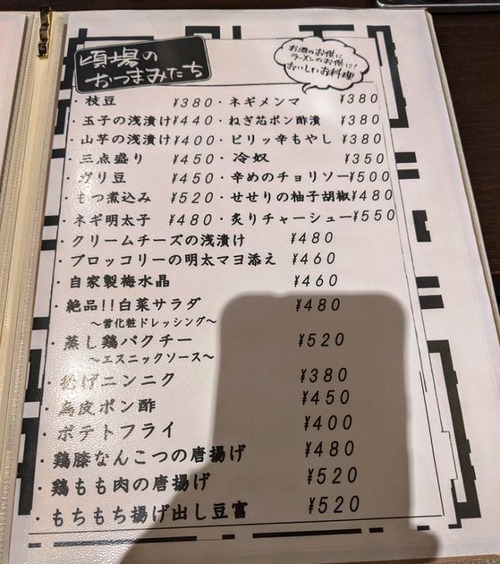 頃場の
おつまみたち
お酒のお供に
ラーメンのお供に!
おいしいお料理
・枝豆 ¥380・ネギメンマ ¥380
・玉子の浅漬け¥440・ねぎ芯ポン酢漬 ¥380
・山芋の浅漬け¥400・ピリッ辛もやし ¥380
・三点盛り ¥450・冷奴 ¥350
・ヴリ豆 ¥450・辛めのチョリソー¥500
・もつ煮込み ¥520・せせりの柚子胡椒¥480
・ネギ明太子 ¥480・炙りチャーシュー¥550
・クリームチーズの浅漬け ¥480
・ブロッコリーの明太マヨ添え ¥460
・自家製梅水晶 ¥460
・絶品!!白菜サラダ ¥480
〜雪化粧ドレッシング〜
・蒸し鶏パクチー ¥520
〜エスニックソース〜
・揚げニンニク ¥380
・鳥皮ポン酢 ¥450
・ポテトフライ ¥400
・鶏膝なんこつの唐揚げ ¥480
・鶏もも肉の唐揚げ ¥520
・もちもち揚げ出し豆富 ¥520